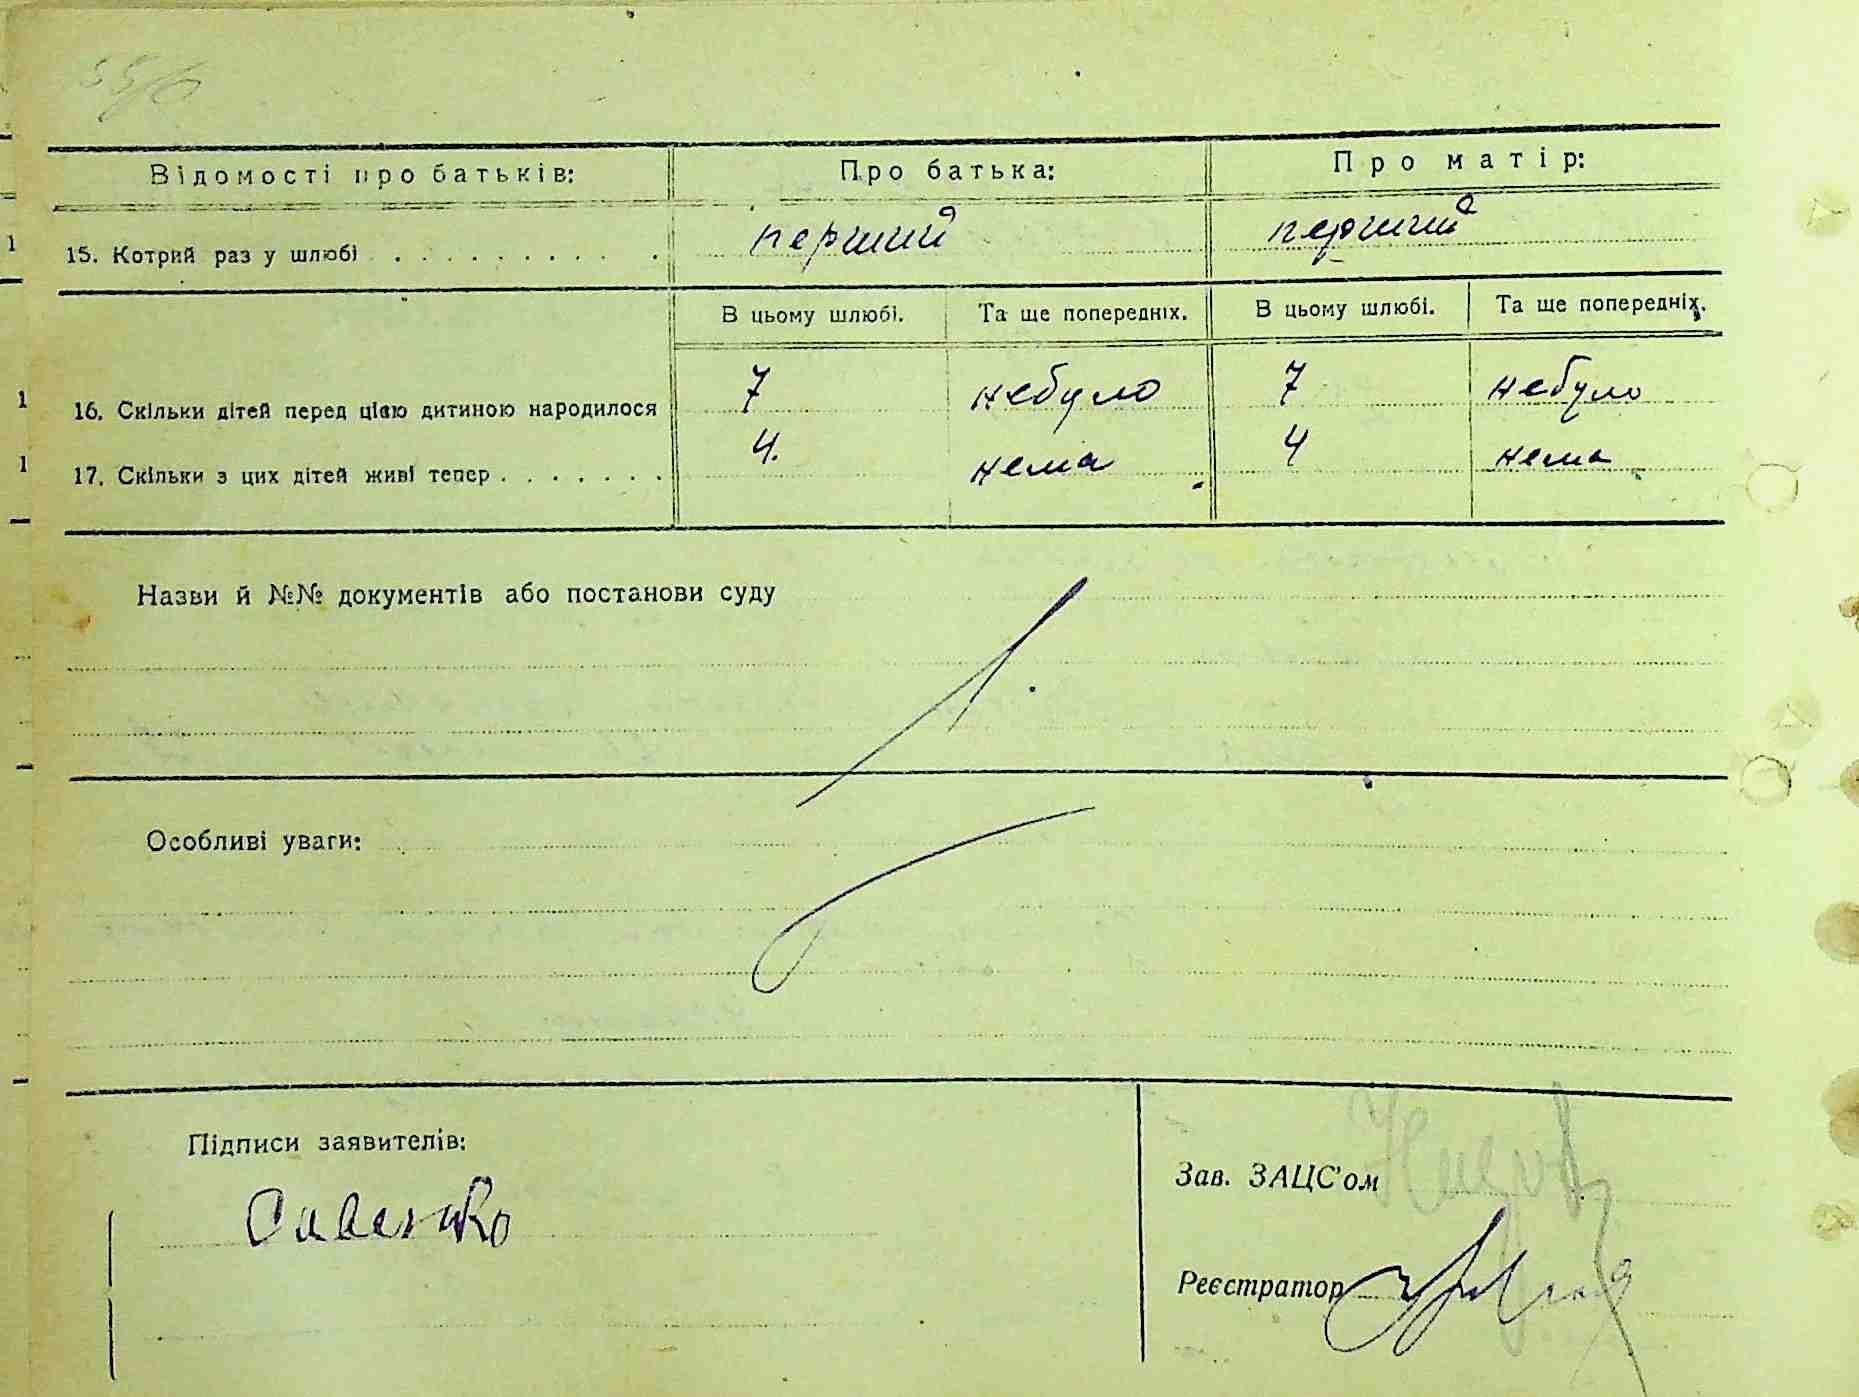 Відомості про батьків: Про батька: Про матір:
15. Котрий раз у шлюбі . . . . . . . . . . перший перший
В цьому шлюбі. Та ще попередніх. В цьому шлюбі. Та ще попередніх.
16. Скільки дітей перед цією дитиною народилося 7 небуло 7 небуло
17. Скільки з цих дітей живі тепер . . . . . . . 4. нема 4 нема
Назви й №№ документів або постанови суду
Особливі уваги:
Підписи заявителів:
Савенко
Зав. ЗАЦС'ом
Реєстратор
1
1
1